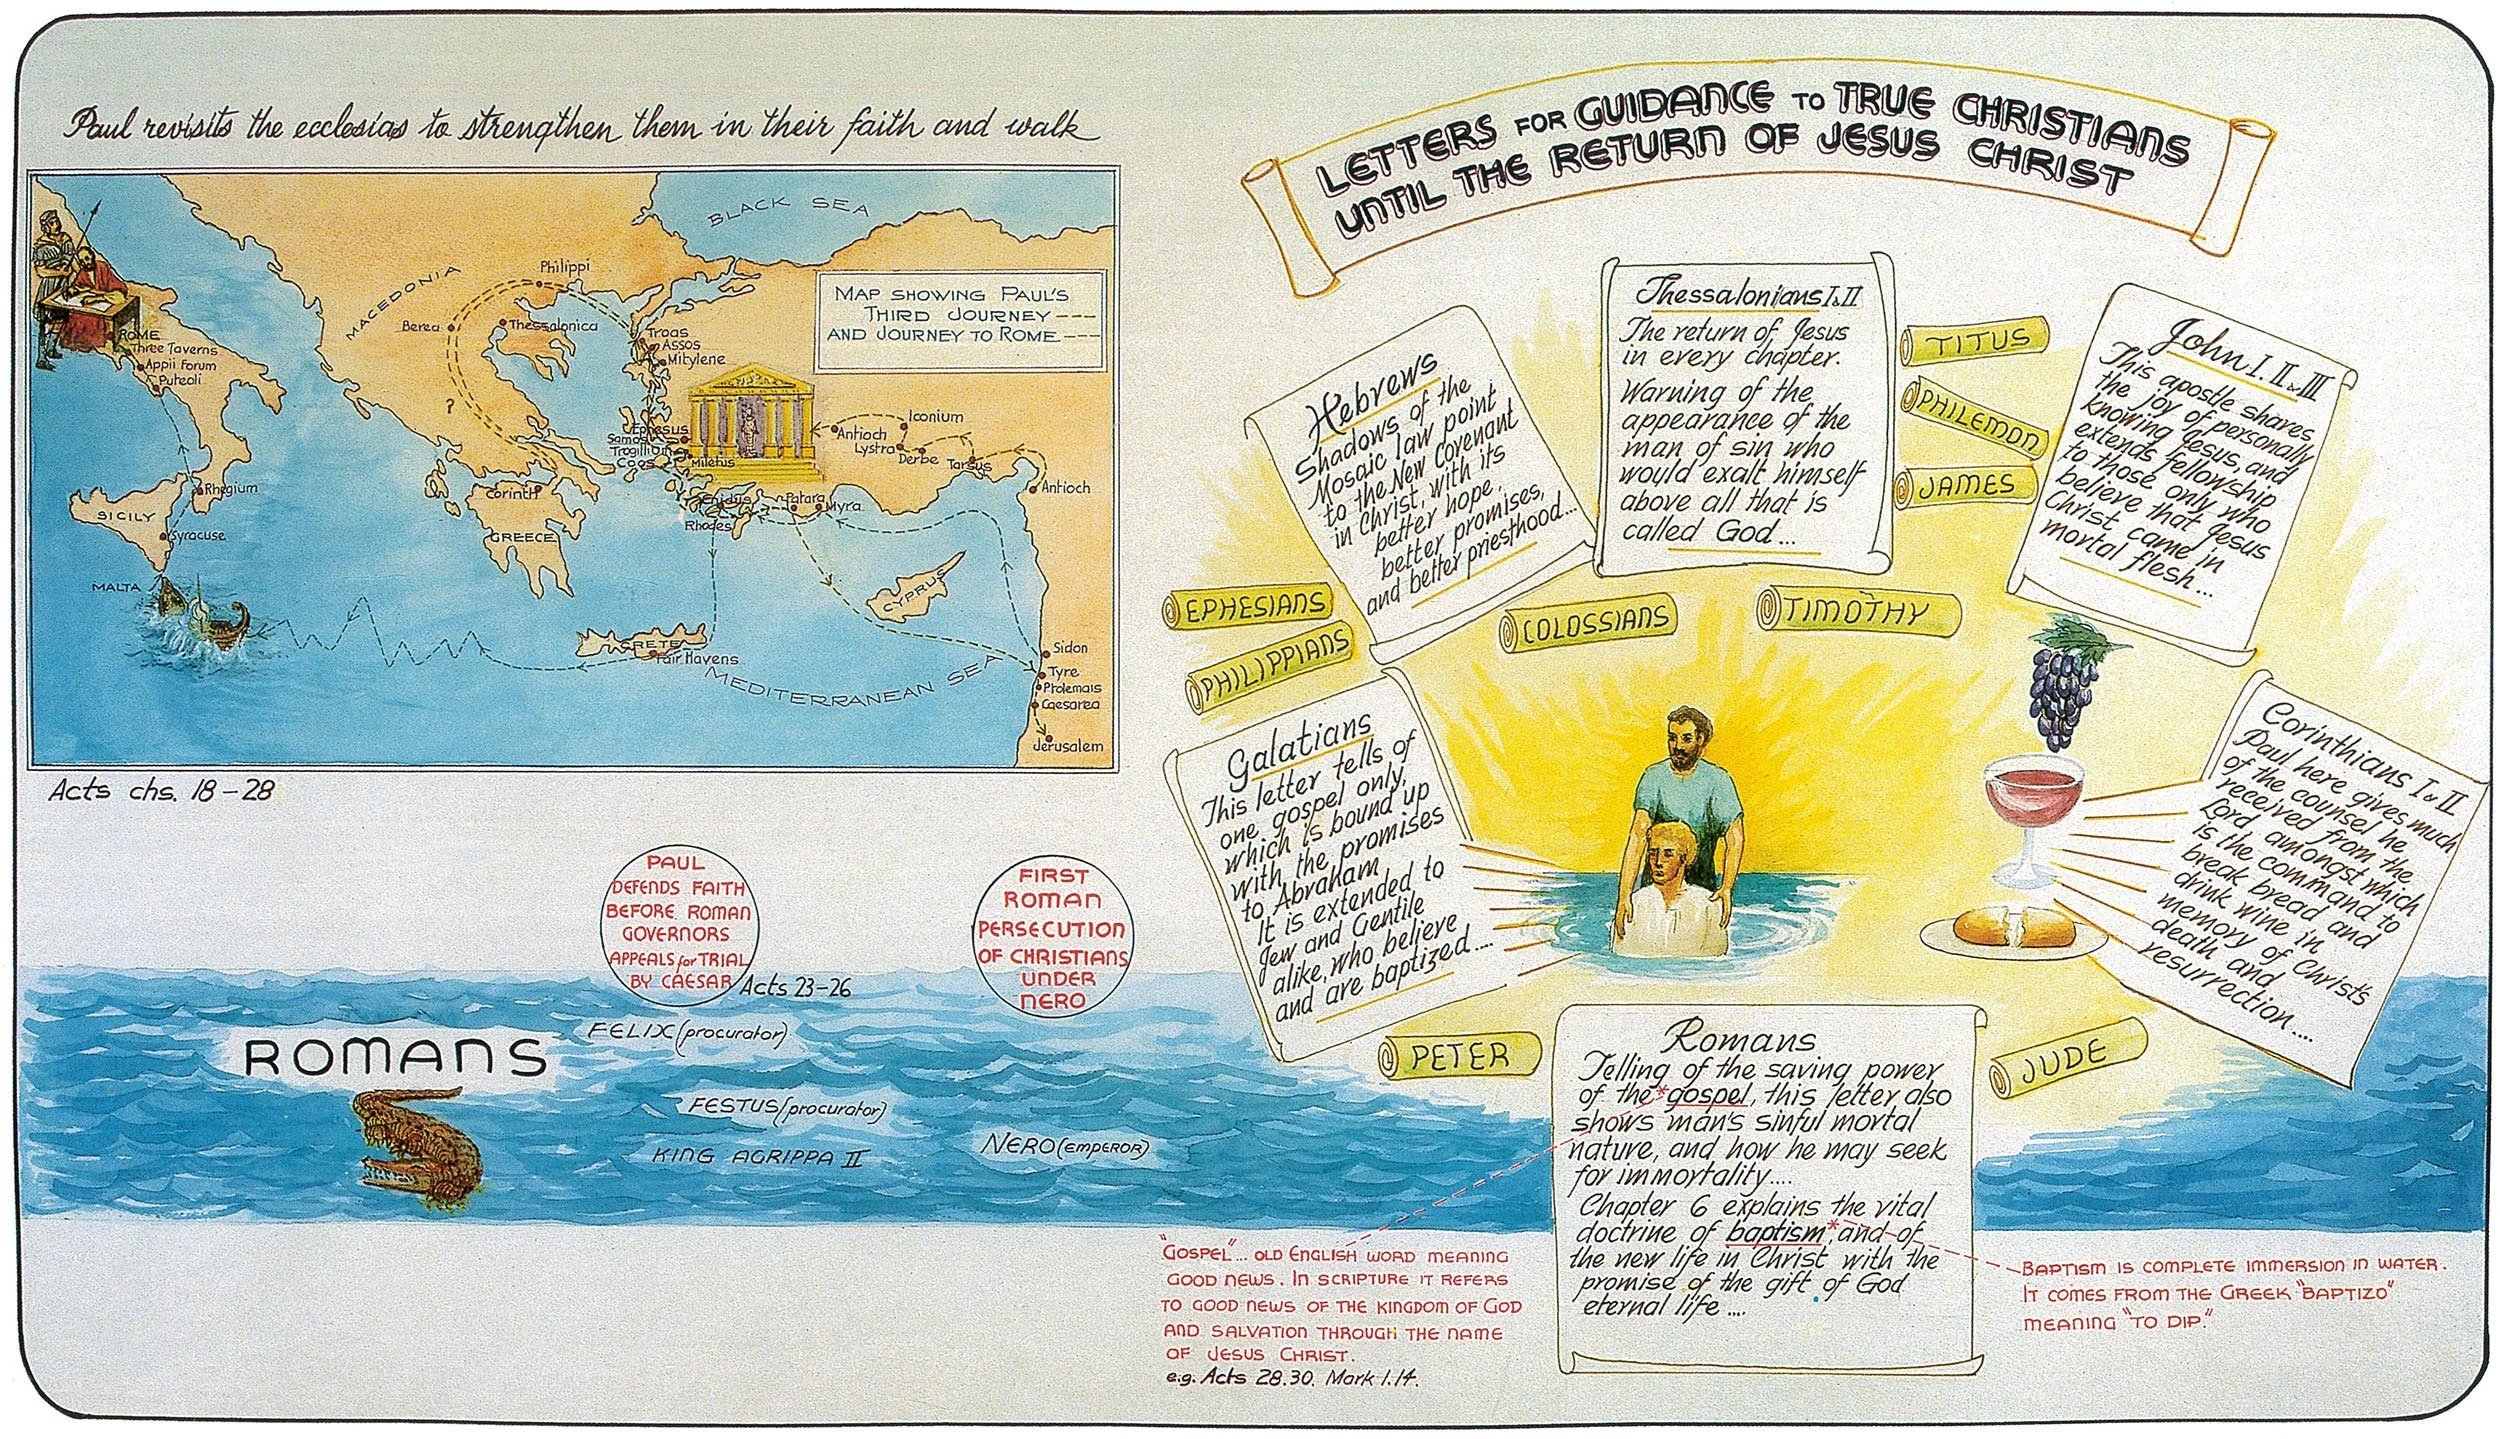 Paul revisits the ecclesias to strengthen them in their faith and walk
BLACK SEA
MACEDONIA
Philippi
MAP SHOWING PAUL'S
THIRD JOURNEY
AND JOURNEY TO ROME
Berea
Thessalonica
Troas
Assos
Mitylene
ROME
Three Taverns
Appii Forum
Puteoli
?
Ephesus
Samos
Trogillium
Coos
Miletus
Iconium
Antioch
Lystra
Derbe
Tarsus
Antioch
Rhegium
SICILY
Syracuse
Corinth
GREECE
Cnidus
Rhodes
Patara
Myra
MALTA
CYPRUS
CRETE
Fair Havens
MEDITERRANEAN SEA
Sidon
Tyre
Ptolemais
Caesarea
Jerusalem
Acts chs. 18-28
PAUL
DEFENDS FAITH
BEFORE ROMAN
GOVERNORS
APPEALS for TRIAL
BY CAESAR
Acts 23-26
FIRST
ROMAN
PERSECUTION
OF CHRISTIANS
UNDER
NERO
ROMANS
FELIX (procurator)
FESTUS (procurator)
KING AGRIPPA II
NERO (EMPEROR)
LETTERS FOR GUIDANCE TO TRUE CHRISTIANS
UNTIL THE RETURN OF JESUS CHRIST
Hebrews
Shadows of the
Mosaic law point
to the New Covenant
in Christ, with its
better hope,
better promises,
and better priesthood...
Thessalonians I & II
The return of Jesus
in every chapter.
Warning of the
appearance of the
man of sin who
would exalt himself
above all that is
called God...
TITUS
PHILEMON
JAMES
John I. II & III
This apostle shares
the joy of personally
knowing Jesus, and
extends fellowship
to those only who
believe that Jesus
Christ came in
mortal flesh...
EPHESIANS
PHILIPPIANS
COLOSSIANS
TIMOTHY
Galatians
This letter tells of
one gospel only,
which is bound up
with the promises
to Abraham
It is extended to
Jew and Gentile
alike, who believe
and are baptized....
Corinthians I & II
Paul here gives much
of the counsel he
received from the
Lord amongst which
is the command to
break bread and
drink wine in
memory of Christ's
death and
resurrection....
PETER
JUDE
Romans
Telling of the saving power
of the *gospel, this letter also
shows man's sinful mortal
nature, and how he may seek
for immortality....
Chapter 6 explains the vital
doctrine of baptism*, and of
the new life in Christ with the
promise of the gift of God
eternal life ....
"GOSPEL"... OLD ENGLISH WORD MEANING
GOOD NEWS. IN SCRIPTURE IT REFERS
TO GOOD NEWS OF THE KINGDOM OF GOD
AND SALVATION THROUGH THE NAME
OF JESUS CHRIST.
e.g. Acts 28.30. Mark 1.14.
BAPTISM IS COMPLETE IMMERSION IN WATER.
IT COMES FROM THE GREEK "BAPTIZO"
MEANING "TO DIP."